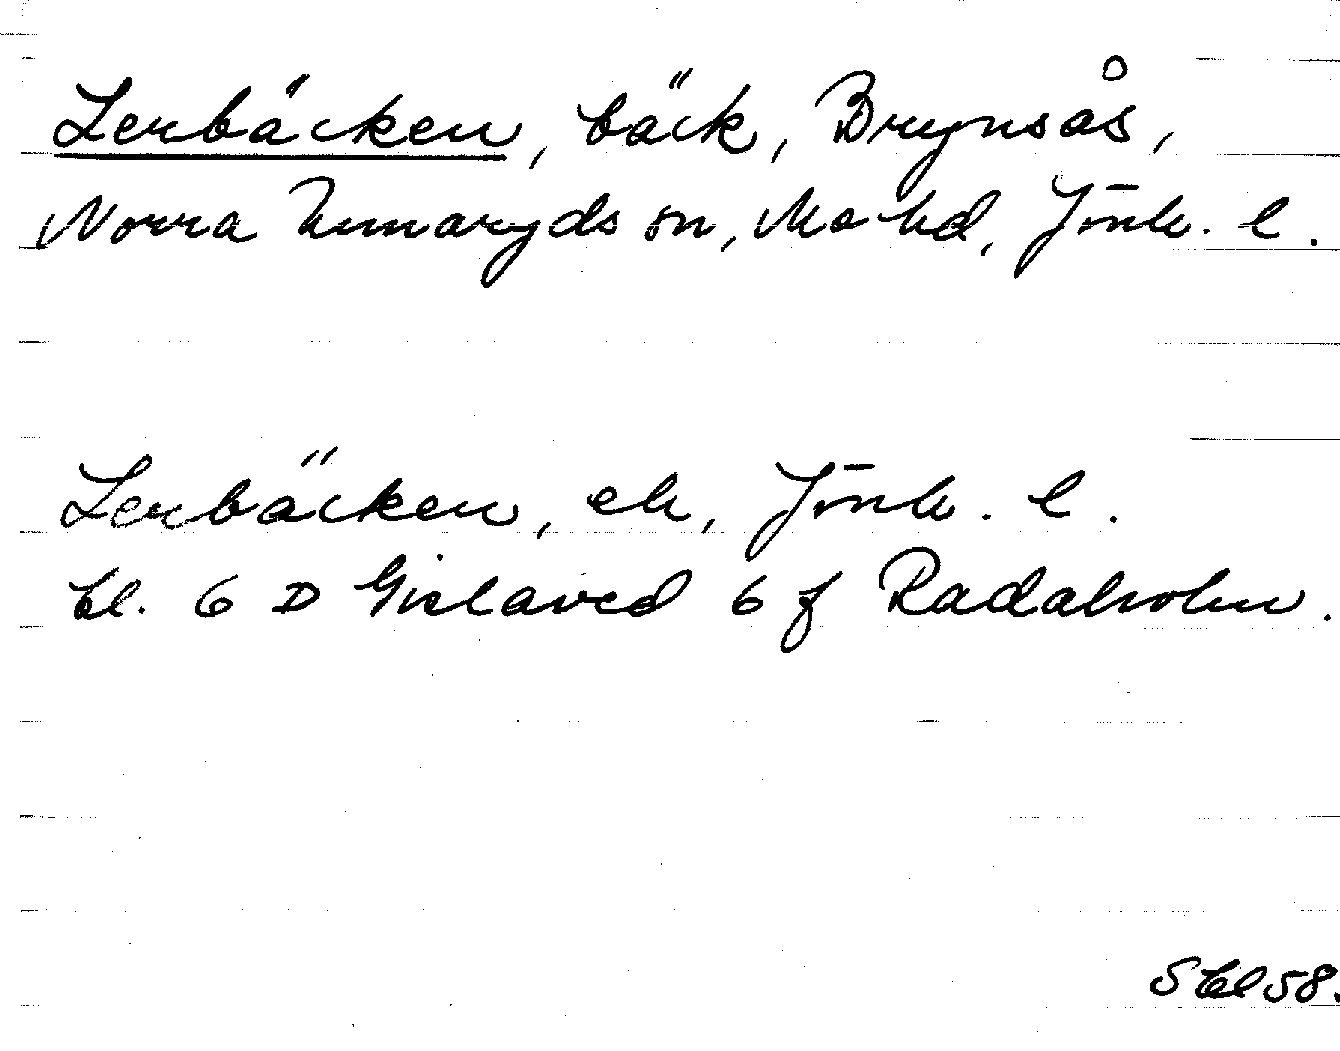 Lerbäcken, bäck, Brynsås,
Norra Unnaryds sn, Mo hd, Jönk. l.
Lerbäcken, ek, Jönk. l.
bl. 6 D Gislaved 6 f Radaholm.
S bl 58.